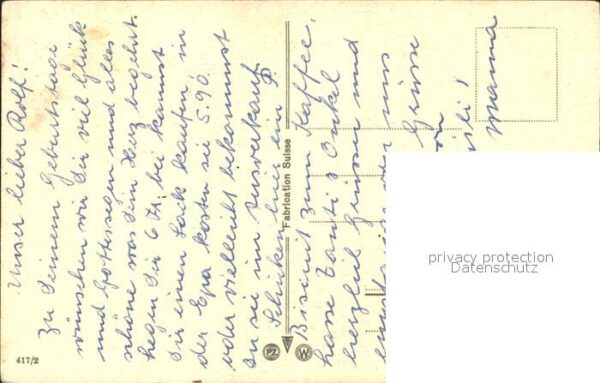 Unser lieber Rolf!
Zu Deinem Geburtstage
wünschen wir Dir viel Glück
und Gottessegen und alles
schöne was Dein Herz begehrt.
legen Dir 6 Fr. bei kannst
Dir einen Sack kaufen in
der Epa kosten sie 5.90.
oder vielleicht bekommst
Du sie im Ausverkauf
Schicken hier ein
Biscuit zum Kaffee.
hasse Tanti & Onkel
herzlich Grüssen und
uns
Grüsse
Mamma
Fabrication Suisse
417/2
PZ W
privacy protection
Datenschutz